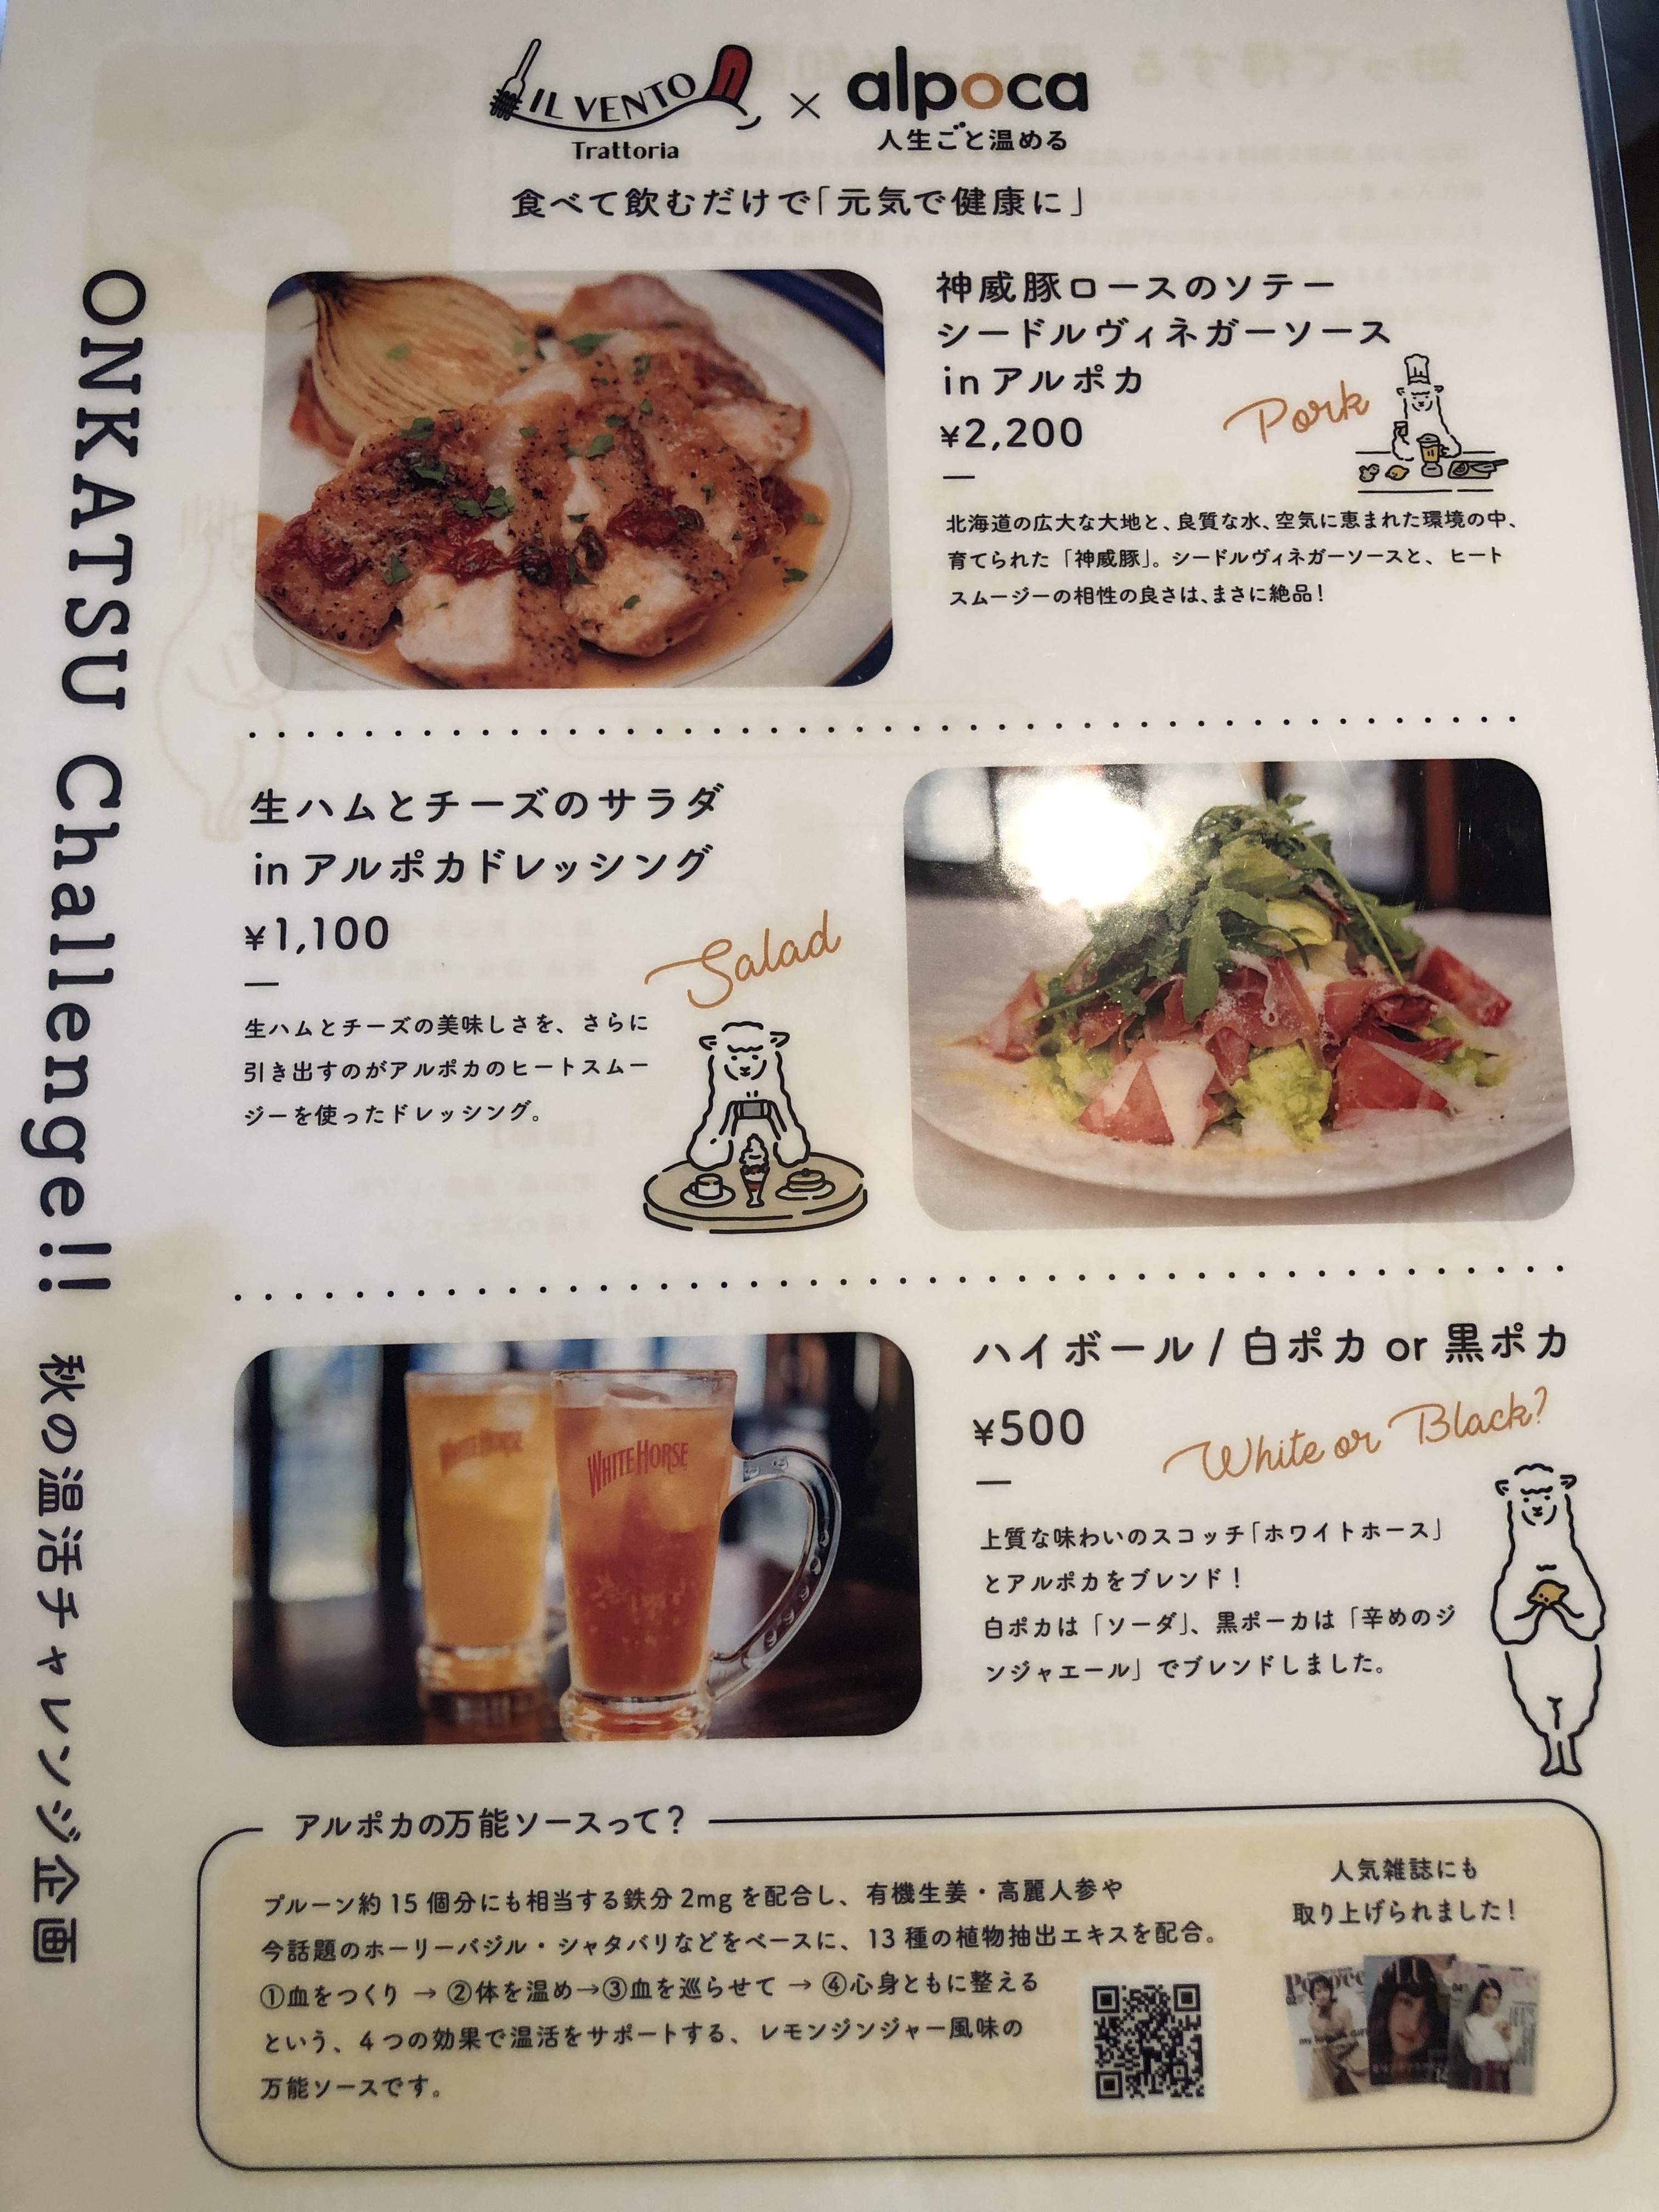 IL VENTO
Trattoria
×
alpoca
人生ごと温める
食べて飲むだけで「元気で健康に」
ONKATSU Challenge!! 秋の温活チャレンジ企画
神威豚ロースのソテー
シードルヴィネガーソース
in アルポカ
¥2,200
Pork
北海道の広大な大地と、良質な水、空気に恵まれた環境の中、
育てられた「神威豚」。シードルヴィネガーソースと、ヒート
スムージーの相性の良さは、まさに絶品！
生ハムとチーズのサラダ
in アルポカドレッシング
¥1,100
Salad
生ハムとチーズの美味しさを、さらに
引き出すのがアルポカのヒートスムー
ジーを使ったドレッシング。
WHITE HORSE
WHITE HORSE
ハイボール / 白ポカ or 黒ポカ
¥500
White or Black?
上質な味わいのスコッチ「ホワイトホース」
とアルポカをブレンド！
白ポカは「ソーダ」、黒ポーカは「辛めのジ
ンジャエール」でブレンドしました。
アルポカの万能ソースって？
プルーン約 15 個分にも相当する鉄分 2mg を配合し、有機生姜・高麗人参や
今話題のホーリーバジル・シャタバリなどをベースに、13 種の植物抽出エキスを配合。
①血をつくり → ②体を温め→③血を巡らせて → ④心身ともに整える
という、4 つの効果で温活をサポートする、レモンジンジャー風味の
万能ソースです。
人気雑誌にも
取り上げられました！